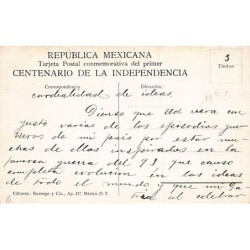 REPÚBLICA MEXICANA
Tarjeta Postal conmemorativa del primer
CENTENARIO DE LA INDEPENDENCIA
3
Timbre
Correspondencia
Dirección:
cordialidad de ideas.
Dicense que Ud verá con
gusto varias de los episodios gue-
rreros de mi país por estar mu-
chas de ellas inspirados en la
famosa guerra del 93, que causó
completa evolución en las ideas
de todo el mundo y que mi Pa-
tria al celebrar
Editores: Ruhland & Ap. 517 México D. F.